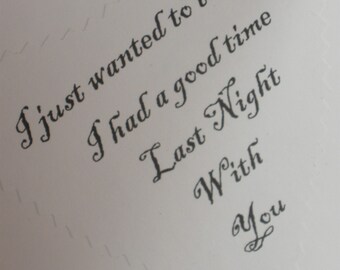 I just wanted to
I had a good time
Last Night
With
You